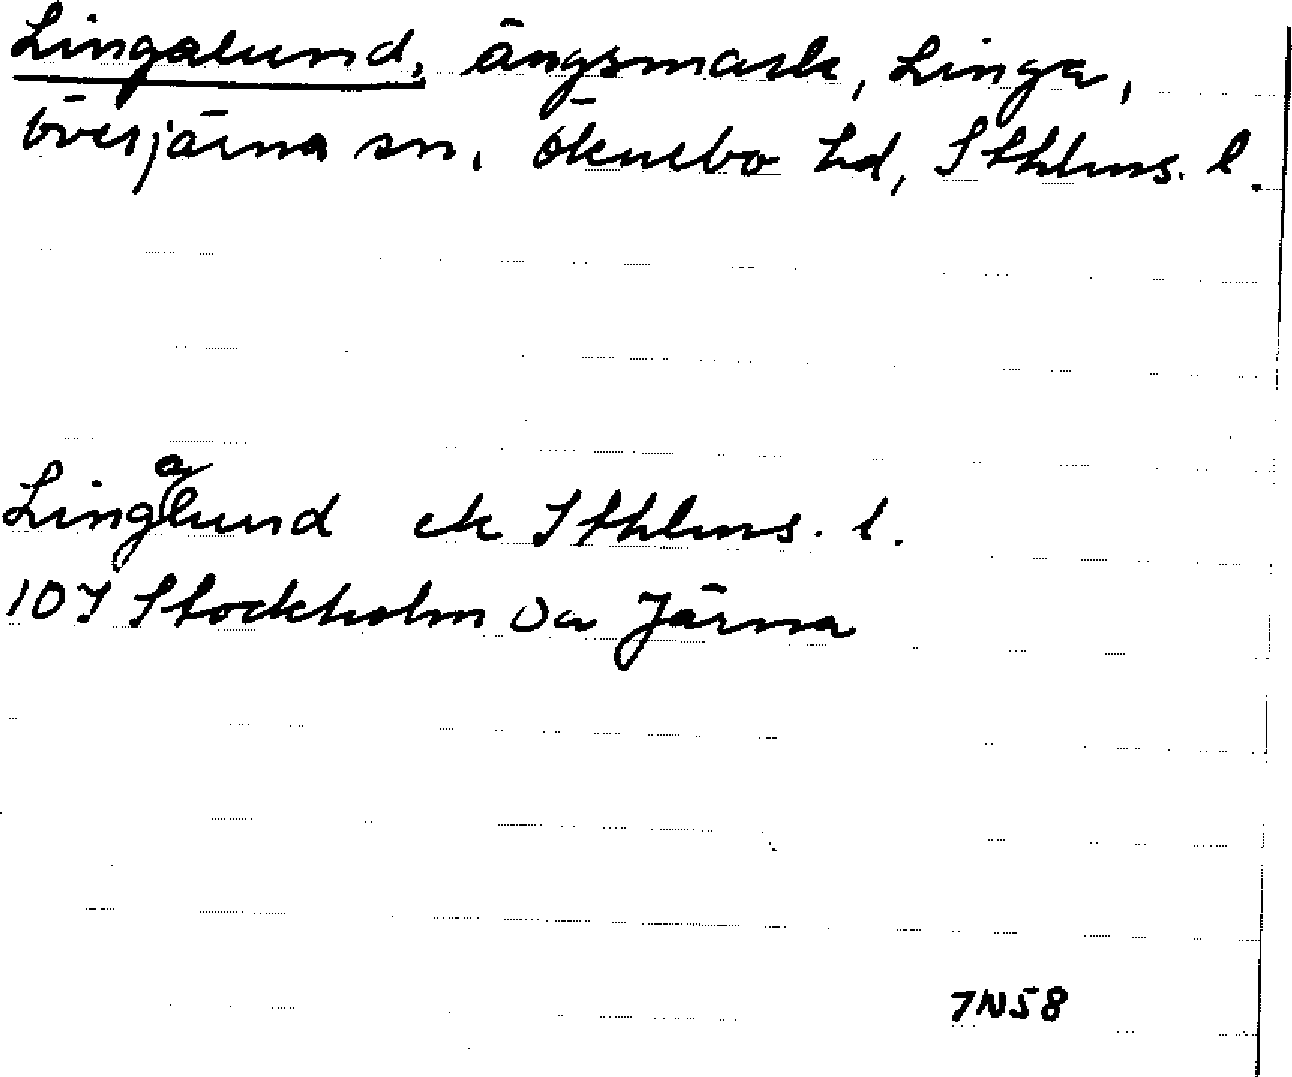 Lingalund, ängsmark, Linga,
Överjärna sn, Öknebo hd, Sthlms. l.
Lingalund ek Sthlms. l.
10I Stockholm SV Järna
7N58